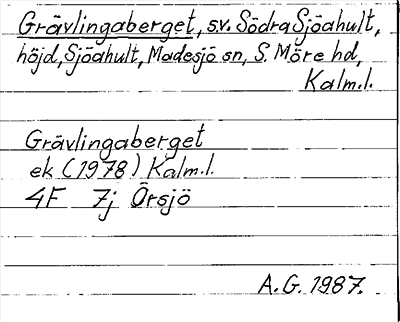 Grävlingaberget, s.v. Södra Sjöahult,
höjd, Sjöahult, Madesjö sn, S. Möre hd,
Kalm.l.
Grävlingaberget
ek (1978) Kalm.l.
4F 7j Örsjö
A.G. 1987.